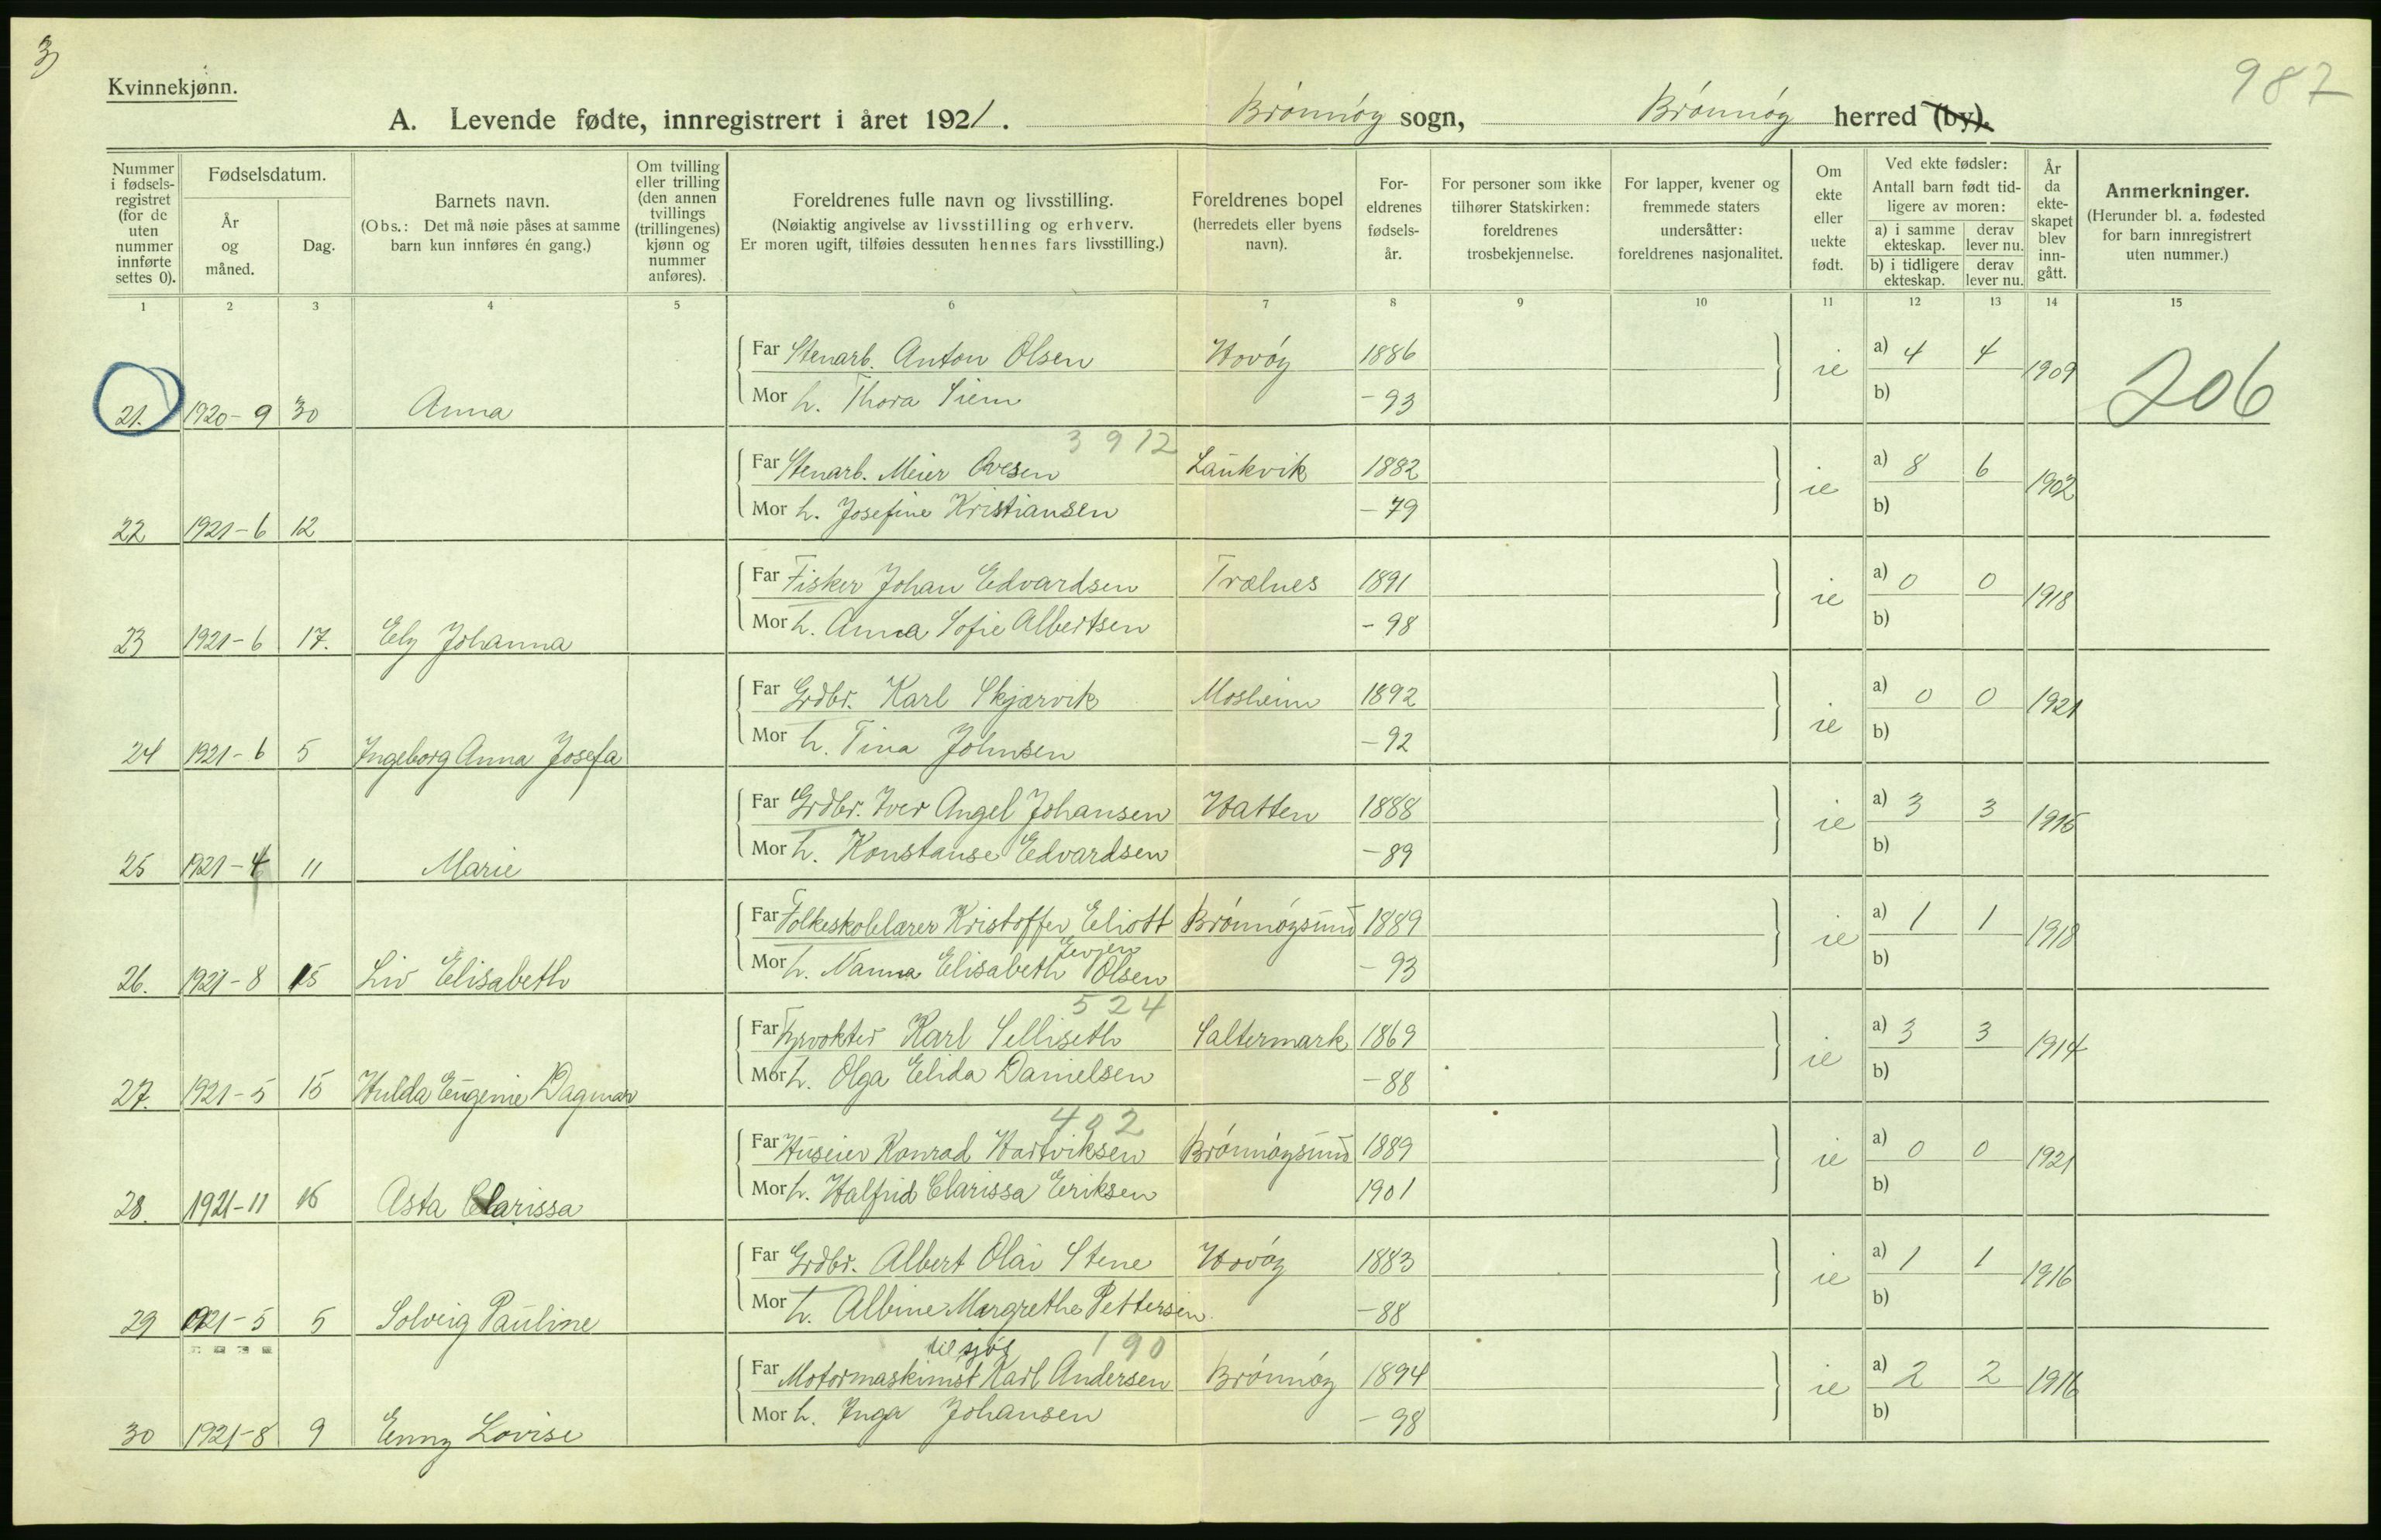 3)
987
Kvinnekjønn.
A. Levende fødte, innregistrert i året 1921. Brönnöy sogn, Brönnöy herred (by).
Nummer i fødsels-registret (for de uten nummer innførte settes 0).
Fødselsdatum.
År og måned.
Dag.
Barnets navn.
(Obs.: Det må nøie påses at samme barn kun innføres én gang.)
Om tvilling eller trilling (den annen tvillings (trillingenes) kjønn og nummer anføres).
Foreldrenes fulle navn og livsstilling.
(Nøiaktig angivelse av livsstilling og erhverv. Er moren ugift, tilføies dessuten hennes fars livsstilling.)
Foreldrenes bopel (herredets eller byens navn).
For-eldrenes fødsels-år.
For personer som ikke tilhører Statskirken: foreldrenes trosbekjennelse.
For lapper, kvener og fremmede staters undersåtter: foreldrenes nasjonalitet.
Om ekte eller uekte født.
Ved ekte fødsler:
Antall barn født tid-ligere av moren:
a) i samme ekteskap.
derav lever nu.
b) i tidligere ekteskap.
derav lever nu.
År da ekte-skapet blev inn-gått.
Anmerkninger.
(Herunder bl. a. fødested for barn innregistrert uten nummer.)
1 2 3 4 5 6 7 8 9 10 11 12 13 14 15
Far Stenarb. Anton Olsen Hovöy 1886 ie a) 4 4 1909 206
21. 1920-9 30 Anna Mor h. Thora Siem -93 b)
3912
Far Stenarb. Meier Ovesen Laukvik 1882 ie a) 8 6 1902
22 1921-6 12 Mor h. Josefine Kristiansen -79 b)
Far Fisker Johan Edvardsen Trælnes 1891 ie a) 0 0 1918
23 1921-6 17. Ely Johanna Mor h. Anna Sofie Albertsen -98 b)
Far Grdbr. Karl Skjærvik Mosheim 1892 ie a) 0 0 1921
24 1921-6 5 Ingeborg Anna Josefa Mor h. Tina Johnsen -92 b)
Far Grdbr. Iver Angel Johansen Hatten 1888 ie a) 3 3 1916
25 1921-4 11 Marie Mor h. Konstanse Edvardsen -89 b)
Far Folkeskolelærer Kristoffer Eliott Brönnöysund 1889 ie a) 1 1 1918
Evjen
26. 1921-8 15 Liv Elisabeth Mor h. Nanna Elisabeth Olsen -93 b)
524
Far Fyrvokter Karl Selliseth Saltermark 1869 ie a) 3 3 1914
27. 1921-5 15 Hulda Eugenie Dagmar Mor h. Olga Elida Danielsen -88 b)
402
Far Huseier Konrad Hartviksen Brönnöysund 1889 ie a) 0 0 1921
28. 1921-11 16 Asta Clarissa Mor h. Halfrid Clarissa Eriksen 1901 b)
Far Grdbr. Albert Olai Stene Hovöy 1883 ie a) 1 1 1916
29 1921-5 5 Solveig Pauline Mor h. Albine Margrethe Pettersen -88 b)
til sjøs 190
Far Motormaskinist Karl Andersen Brönnöy 1894 ie a) 2 2 1916
30 1921-8 9 Enny Lovise Mor h. Inga Johansen -98 b)